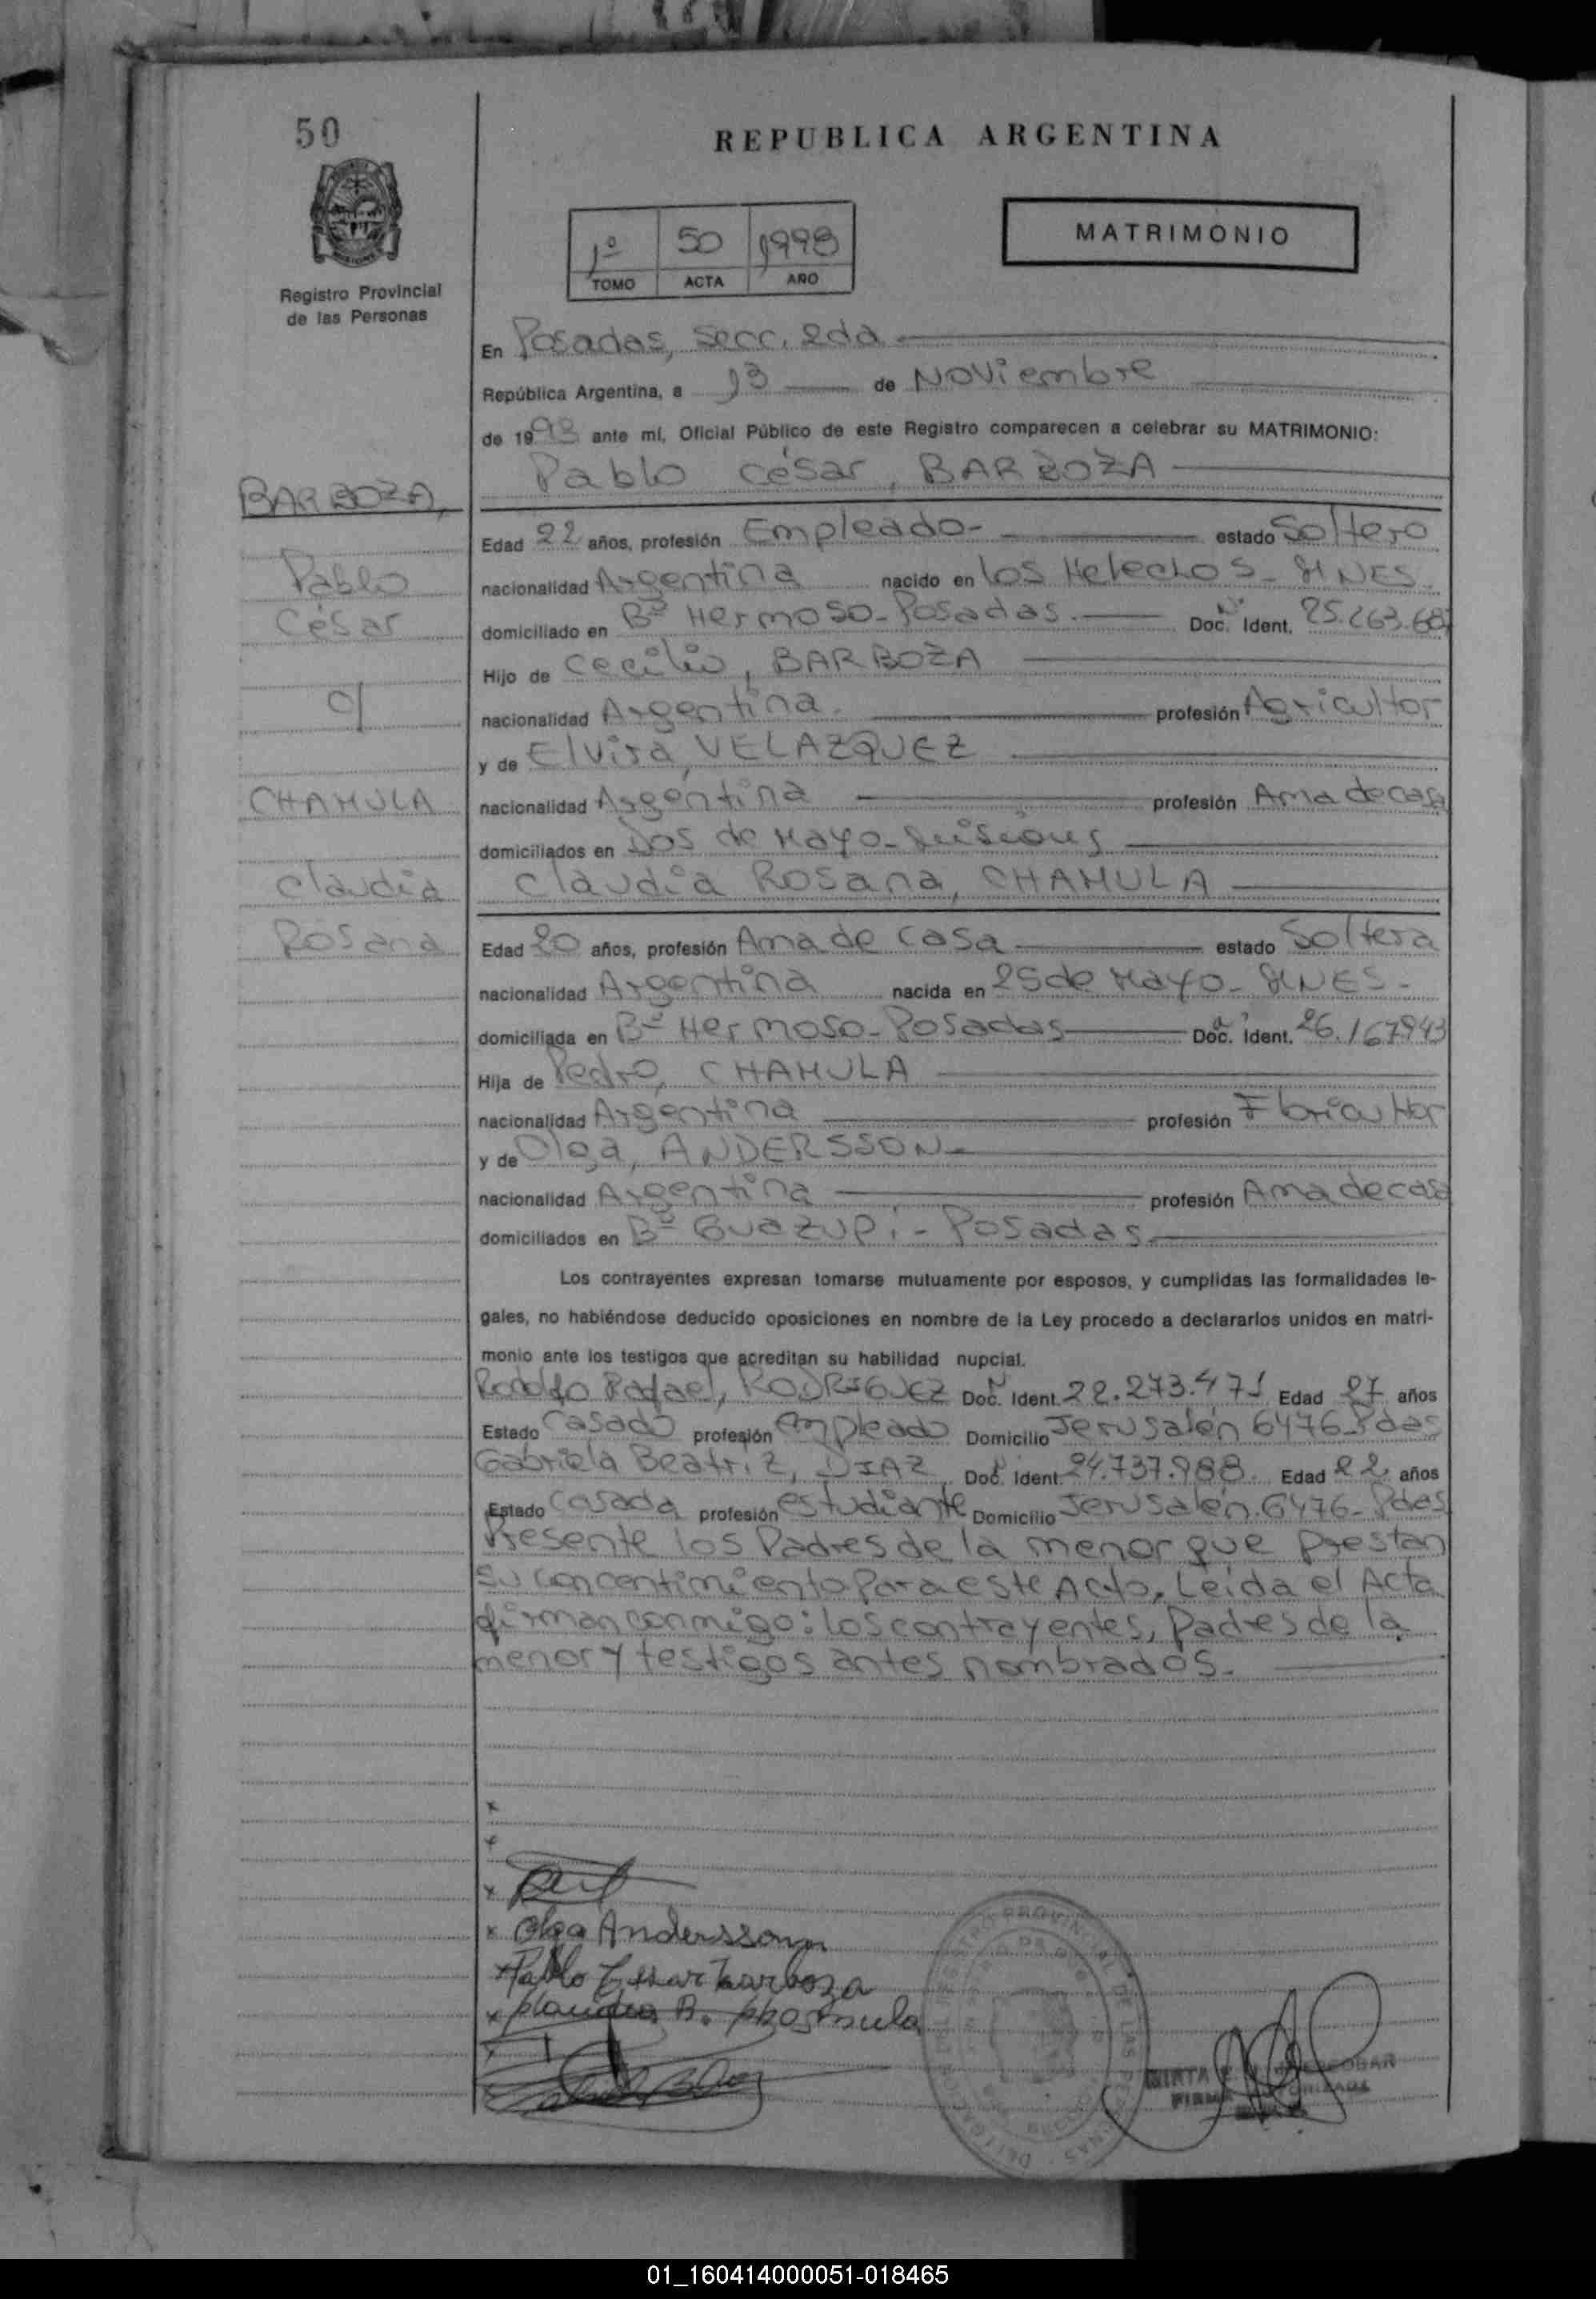 50
REPUBLICA ARGENTINA
1º 50 1998
TOMO ACTA AÑO
MATRIMONIO
Registro Provincial
de las Personas
En Posadas, Secc. 2da
República Argentina, a 13 de NOViembre
de 1998 ante mí, Oficial Público de este Registro comparecen a celebrar su MATRIMONIO:
Pablo César, BARBOZA
BARBOZA,
Edad 22 años, profesión Empleado - estado Soltero
Pablo
nacionalidad Argentina nacido en los Helechos - MNES.
César
domiciliado en Bº Hermoso - Posadas. Doc. Ident. 25.263.68
Hijo de Cecilio, BARBOZA
c/
nacionalidad Argentina. profesión Agricultor
y de Elvira, VELAZQUEZ
CHAMULA
nacionalidad Argentina profesión Ama de casa
domiciliados en Dos de Mayo - Misiones
Claudia
Claudia Rosana, CHAMULA
Rosana
Edad 20 años, profesión Ama de casa estado Soltera
nacionalidad Argentina nacida en 25 de Mayo - MNES -
domiciliada en Bº Hermoso - Posadas Doc. Ident. 26.167943
Hija de Pedro, CHAMULA
nacionalidad Argentina profesión Floricultor
y de Olga, ANDERSSON
nacionalidad Argentina profesión Ama de casa
domiciliados en Bº Guazupi - Posadas
Los contrayentes expresan tomarse mutuamente por esposos, y cumplidas las formalidades le-
gales, no habiéndose deducido oposiciones en nombre de la Ley procedo a declararlos unidos en matri-
monio ante los testigos que acreditan su habilidad nupcial.
Rodolfo Rafael, RODRIGUEZ Doc. Ident. 22.273.471 Edad 27 años
Estado Casado profesión Empleado Domicilio Jerusalén 6476 - Pdas
Gabriela Beatriz, DIAZ Doc. Ident. 24.737.988 Edad 22 años
Estado Casada profesión estudiante Domicilio Jerusalén 6476 - Pdas
Presente los Padres de la menor que prestan
su concentimiento para este Acto. Leída el Acta
firman conmigo: los contrayentes, Padres de la
menor y testigos antes nombrados.
Olga Andersson
Pablo Cesar Barboza
Claudia R. Chamula
MIRTA ESCOBAR
01_160414000051-018465